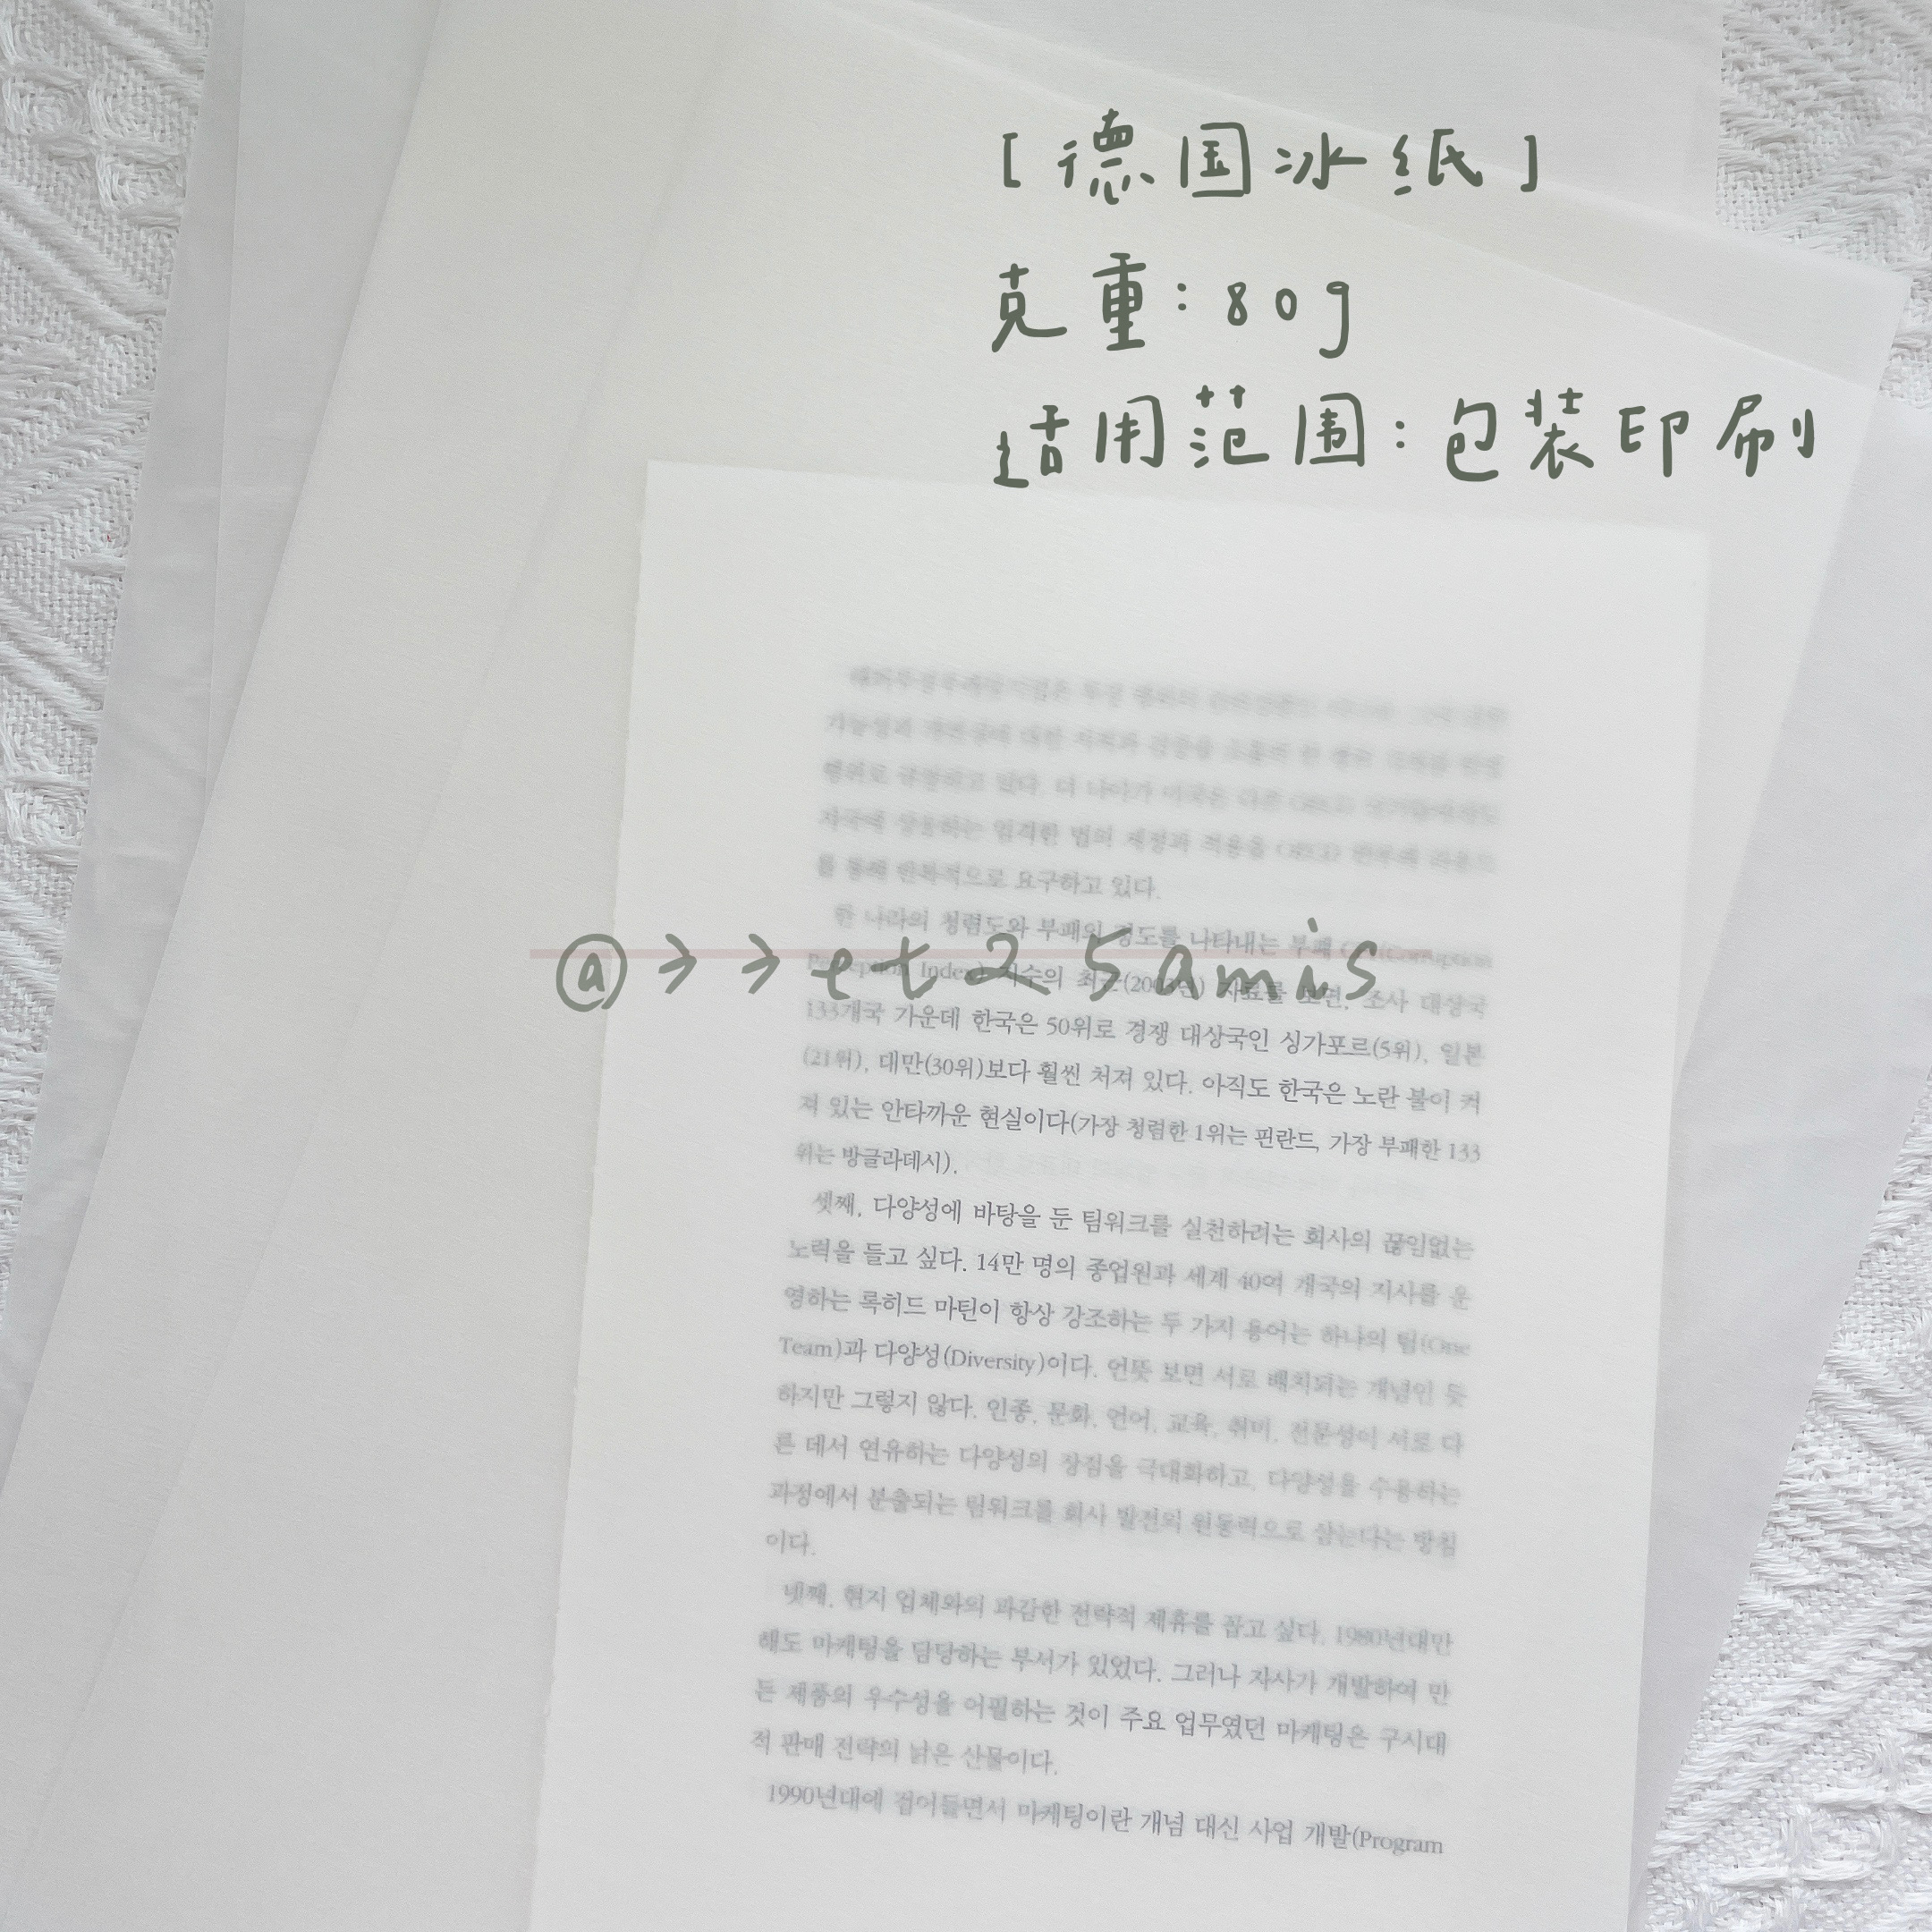 [德国冰纸]
克重:80g
适用范围:包装印刷
를 통해 반복적으로 요구하고 있다.
한 나라의 청렴도와 부패의 정도를 나타내는 부패
@>>et25amis
Perception Index) 지수의 최근(2003년) 자료를 보면, 조사 대상국
133개국 가운데 한국은 50위로 경쟁 대상국인 싱가포르(5위), 일본
(21위), 대만(30위)보다 훨씬 처져 있다. 아직도 한국은 노란 불이 켜
져 있는 안타까운 현실이다(가장 청렴한 1위는 핀란드, 가장 부패한 133
위는 방글라데시).
셋째, 다양성에 바탕을 둔 팀워크를 실천하려는 회사의 끊임없는
노력을 들고 싶다. 14만 명의 종업원과 세계 40여 개국의 지사를 운
영하는 록히드 마틴이 항상 강조하는 두 가지 용어는 하나의 팀(One
Team)과 다양성(Diversity)이다. 언뜻 보면 서로 배치되는 개념인 듯
하지만 그렇지 않다. 인종, 문화, 언어, 교육, 취미, 전문성이 서로 다
른 데서 연유하는 다양성의 장점을 극대화하고, 다양성을 수용하는
과정에서 분출되는 팀워크를 회사 발전의 원동력으로 삼는다는 방침
이다.
넷째, 현지 업체와의 과감한 전략적 제휴를 꼽고 싶다. 1980년대만
해도 마케팅을 담당하는 부서가 있었다. 그러나 자사가 개발하여 만
든 제품의 우수성을 어필하는 것이 주요 업무였던 마케팅은 구시대
적 판매 전략의 낡은 산물이다.
1990년대에 접어들면서 마케팅이란 개념 대신 사업 개발(Program